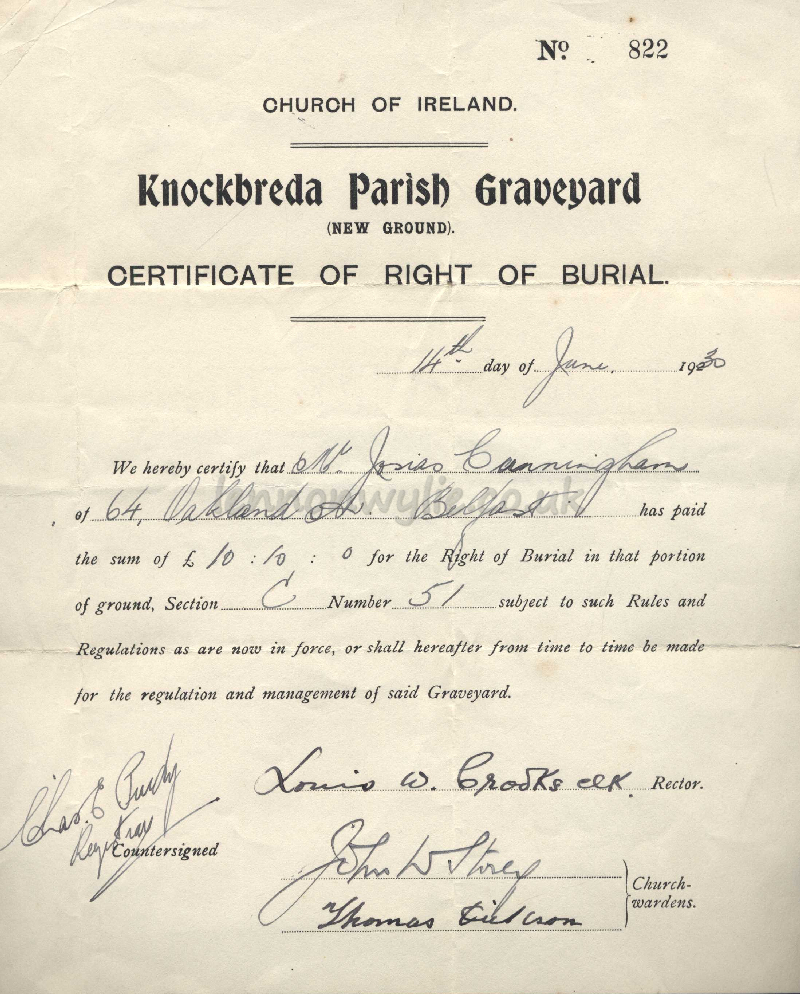 No. 822
CHURCH OF IRELAND.
Knockbreda Parish Graveyard
(NEW GROUND).
CERTIFICATE OF RIGHT OF BURIAL.
14th day of June. 1930
We hereby certify that Mr. Josias Cunningham
of 64, Oakland Av. Belfast has paid
the sum of £ 10 : 10 : 0 for the Right of Burial in that portion
of ground, Section C Number 51 subject to such Rules and
Regulations as are now in force, or shall hereafter from time to time be made
for the regulation and management of said Graveyard.
Louis W. Crooks clk. Rector.
Chas. E. Purdy
Registrar
Countersigned
John W Storey
Church-
wardens.
Thomas